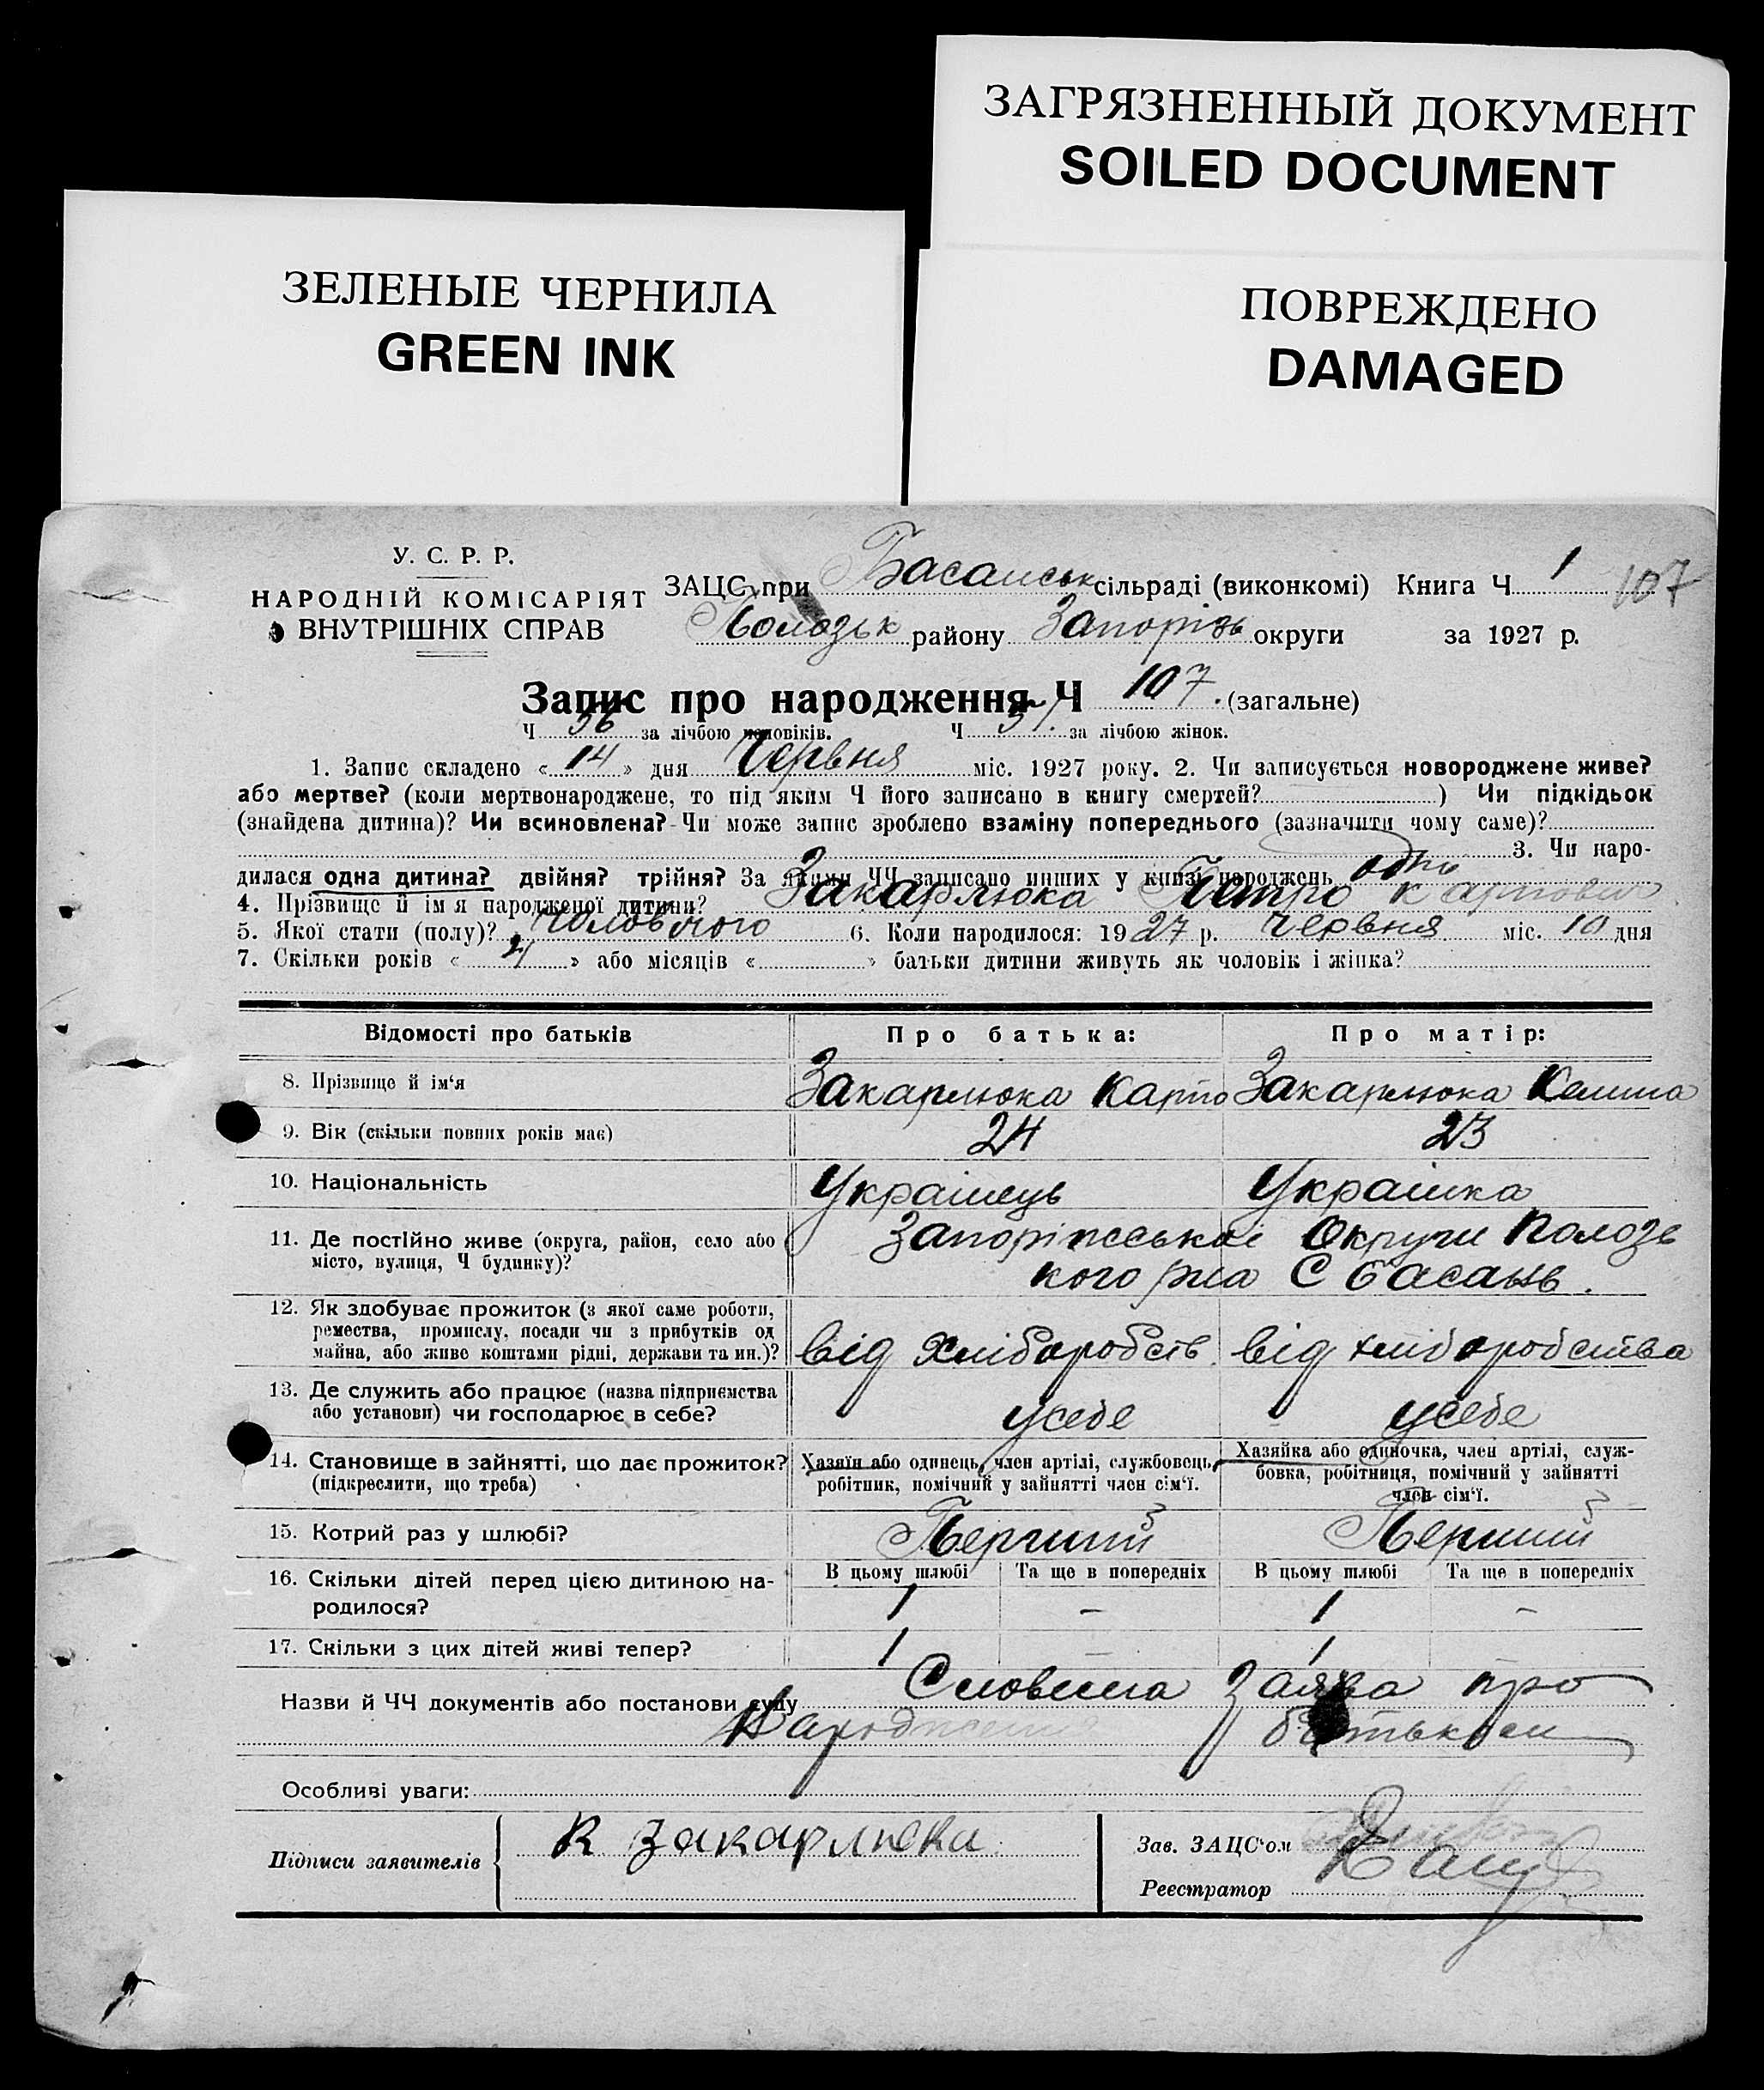 ЗАГРЯЗНЕННЫЙ ДОКУМЕНТ
SOILED DOCUMENT
ЗЕЛЕНЫЕ ЧЕРНИЛА
GREEN INK
ПОВРЕЖДЕНО
DAMAGED
У. С. Р. Р.
НАРОДНІЙ КОМІСАРІЯТ
ВНУТРІШНІХ СПРАВ
ЗАЦС при Басанськ сільраді (виконкомі) Книга Ч 1 107
Пологзьк району Запорізь округи за 1927 р.
Запис про народження Ч 107. (загальне)
Ч 56 за лічбою чоловіків. Ч 51. за лічбою жінок.
1. Запис складено «14» дня Червня міс. 1927 року. 2. Чи записується новороджене живе?
або мертве? (коли мертвонароджене, то під яким Ч його записано в книгу смертей? ) Чи підкідьок
(знайдена дитина)? Чи всиновлена? Чи може запис зроблено взаміну попереднього (зазначити чому саме)?
3. Чи наро-
дилася одна дитина? двійня? трійня? За якими ЧЧ записано инших у книзі народжень
4. Прізвище й ім'я народженої дитини? Закарлюка Петро Карпович
5. Якої стати (полу)? чоловічого 6. Коли народилося: 1927 р. Червня міс. 10 дня
7. Скільки років « 4 » або місяців « » батьки дитини живуть як чоловік і жінка?
Відомості про батьків Про батька: Про матір:
8. Прізвище й ім'я Закарлюка Карпо Закарлюка
9. Вік (скільки повних років має) 24 23
10. Національність Українець Українка
11. Де постійно живе (округа, район, село або місто, вулиця, Ч будинку)? Запоріжської Округи Пологзь
кого р-на С Басань.
12. Як здобуває прожиток (з якої саме роботи,
ремества, промислу, посади чи з прибутків од
майна, або живе коштами рідні, держави та ин.)? від хліборобств від хліборобства
13. Де служить або працює (назва підприємства
або установи) чи господарює в себе? усебе усебе
14. Становище в зайнятті, що дає прожиток?
(підкреслити, що треба)
Хазяїн або одинець, член артілі, службовець,
робітник, помічний у зайнятті член сім'ї.
Хазяйка або одиночка, член артілі, служ-
бовка, робітниця, помічний у зайнятті
член сім'ї.
15. Котрий раз у шлюбі? Перший Перший
16. Скільки дітей перед цією дитиною на-
родилося?
В цьому шлюбі Та ще в попередніх В цьому шлюбі Та ще в попередніх
1 – 1 –
17. Скільки з цих дітей живі тепер? 1 1
Назви й ЧЧ документів або постанови суду Словесна Заява про
Народження батьком
Особливі уваги:
Підписи заявителів К Закарлюка
Зав. ЗАЦС'ом
Реєстратор